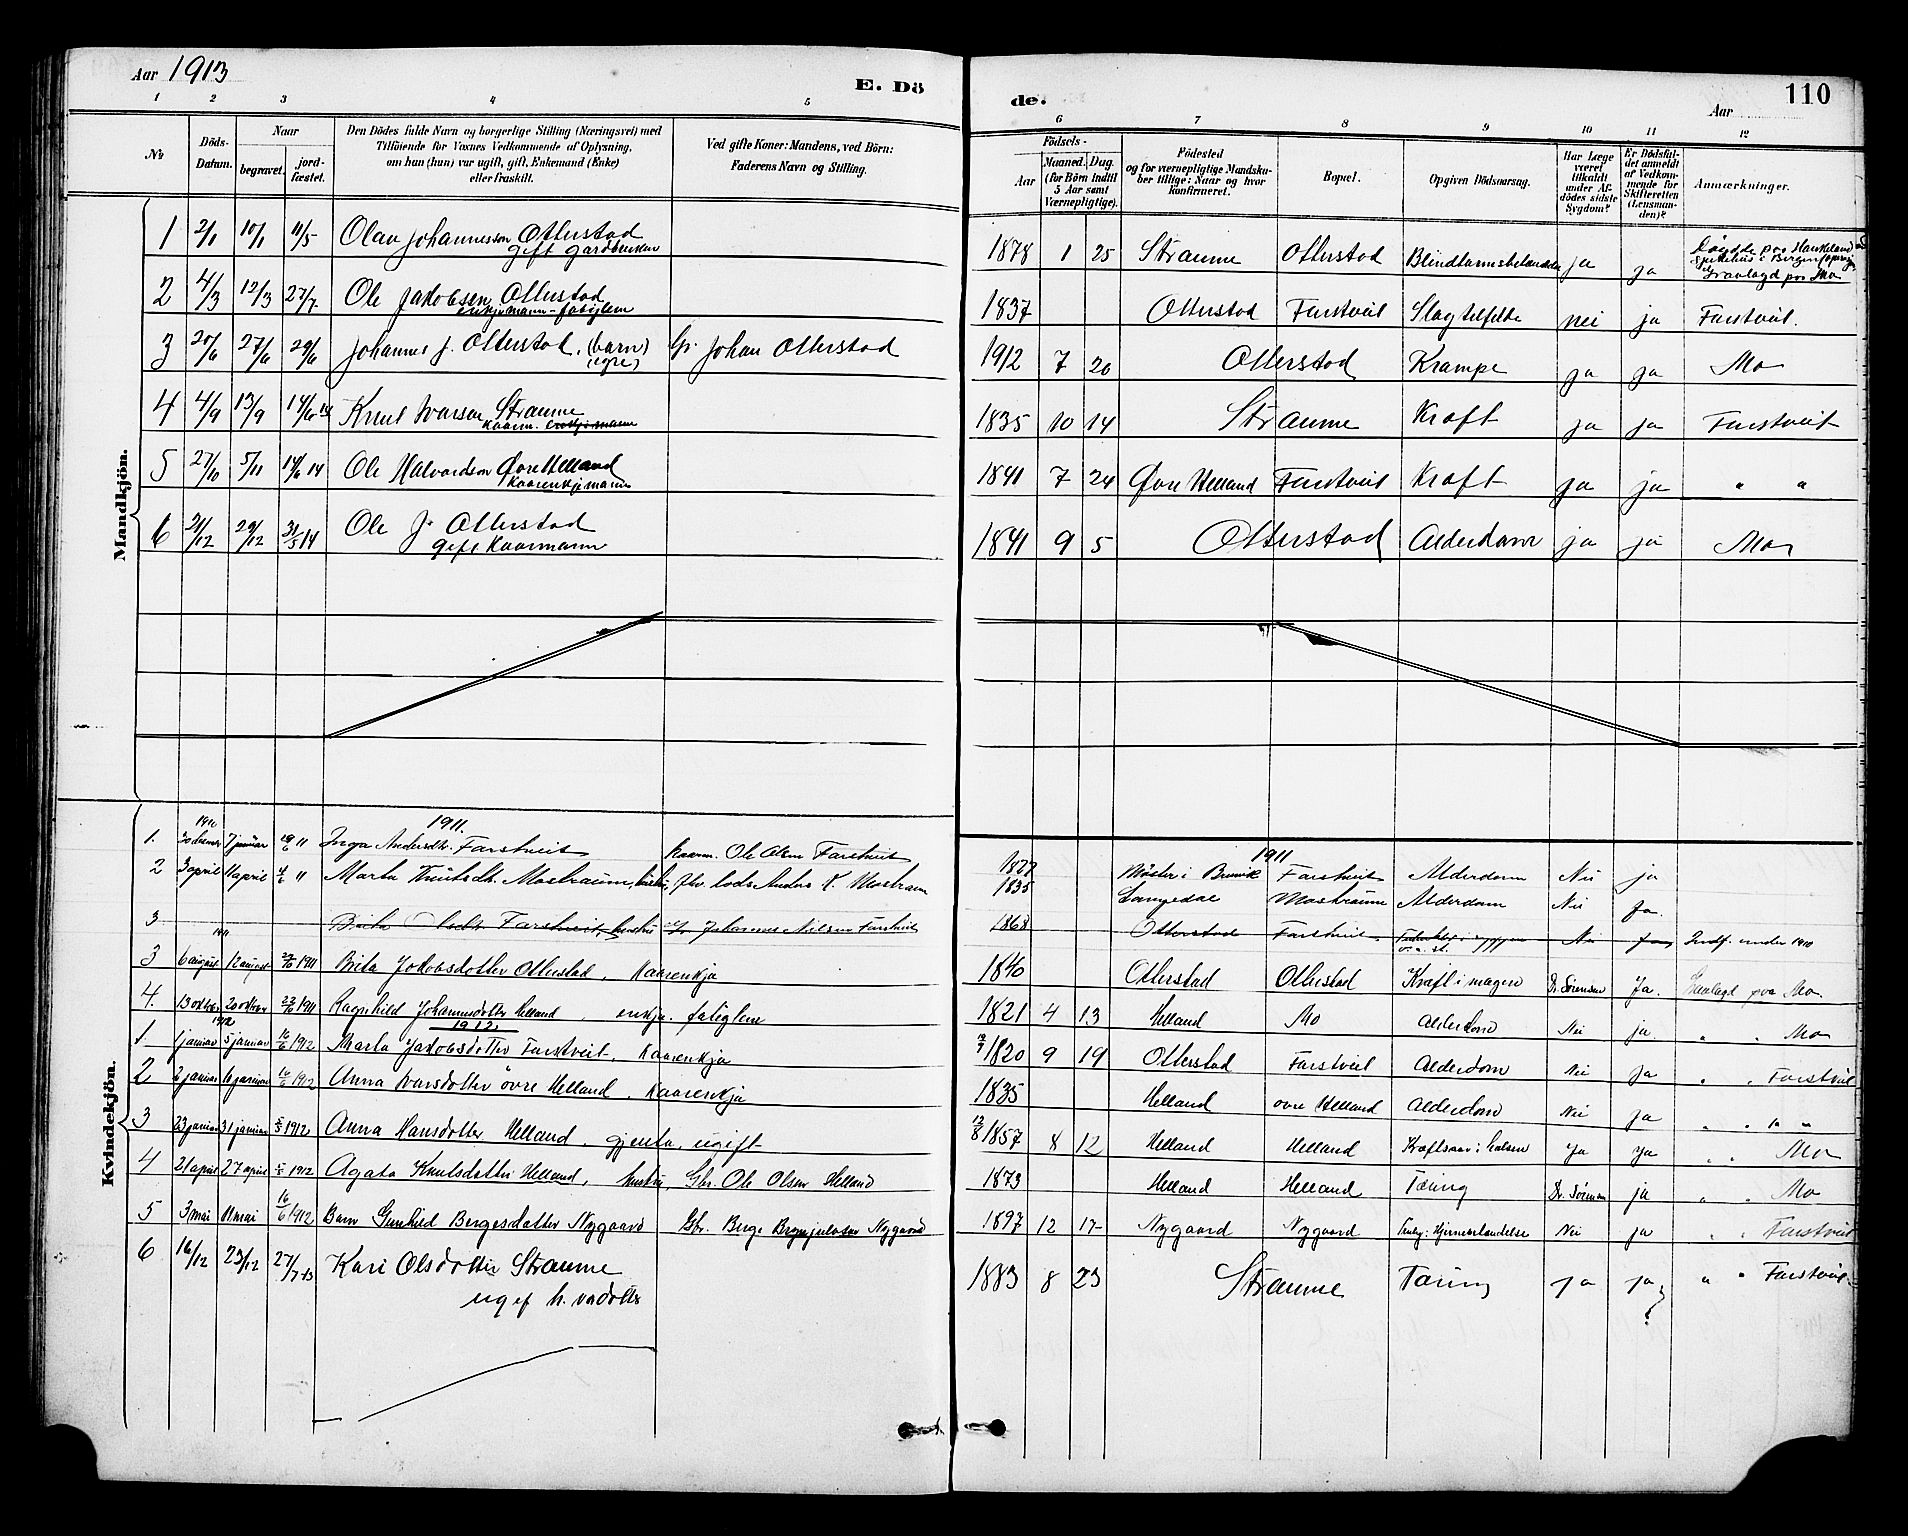 Aar 1913
E. Dö
de.
Aar
110
1 2 3 4 5
6 7 8 9 10 11 12
No
Döds-Datum.
Naar
begravet.
jord-fæstet.
Den Dödes fulde Navn og borgerlige Stilling (Næringsvei) med
Tilföiende for Voxnes Vedkommende af Oplysning,
om hun (hun) var ugift, gift, Enkemand (Enke)
eller fraskilt.
Ved gifte Koner: Mandens, ved Börn:
Faderens Navn og Stilling.
Födsels-
Aar
Maaned. Dag.
(for Börn indtil
5 Aar samt
Værnepligtige).
Födested
og for værnepligtige Mandsku-
ber tillige: Naar og hvor
konfirmeret.
Bopæl.
Opgiven Dödsaarsag.
Har Læge
været
tilkaldt
under Af-
dödes sidste
Sygdom?
Er Dödsfal-
det anmeldt
af Vedkom-
mende for
Skifteretten
(Lensman-
den)?
Anmærkninger.
Mandkjön.
1 2/1 10/1 11/5 Olav Johannesson Otterstad
gift gardbruker
1878 1 25 Straume Otterstad Blindtarmsbetændelse ja ja
Døydde paa Haukeland
Sjukehus i Bergen
Gravlagd paa Mo
2 4/3 12/3 27/7 Ole Jakobsen Otterstad
enkjemann - fatiglem
1837 Otterstad Farstveit Slagtilfelde nei ja Farstveit.
3 20/6 27/6 29/6 Johannes J. Otterstad. (barn) Gr. Johan Otterstad
1912 7 20 Otterstad Krampe ja ja Mo
4 4/9 13/9 14/6 14 Knut Ivarson Straume
Kaarm. enkjemann
1835 10 14 Straume Kraft ja ja Farstveit
5 27/10 5/11 14/6 14 Ole Halvardson Øvre Helland
Kaarenkjemann
1841 7 24 Øvre Helland Farstveit Kraft ja ja " "
6 21/12 29/12 31/5 14 Ole J. Otterstad
gift Kaarmann
1841 9 5 Otterstad Alderdom ja ja Mo
Kvindekjön.
1910 1911.
1. 7 januar 19/6 11 Inga Andersdtr. Farstveit Kaarm. Ole Olsen Farstveit
1911
1827 Farstveit Alderdom Nei ja
2 3 april 11 april 4/6 " Marta Knutsdtr. Mostraum, Anders K. Mostraum
1835 Langedal Mostraum Alderdom Nei Ja.
3 Brita Olsdtr Farstveit, hustru Johannes Nilsen Farstveit
1868 Otterstad Farstveit. Nei Ja Indf. under 1910
1911
3 6 august 12 august 1911 Brita Jakobsdotter Otterstad, Kaarenkja
1840 Otterstad Otterstad Kræft i magen Dr. Sørensen Ja. Gravlagt paa Mo.
4. 13 oktober 20 oktober 23/10 1911 Ragnhild Johannesdotter Helland, enkja. fatiglem
1821 4 13 Helland Mo Alderdom Nei ja. " " Mo
1912 1912
1. 1 januar 5 januar 16/6 1912 Marta Jakobsdotter Farstveit, Kaarenkja
1820 9 19 Otterstad Farstveit Alderdom Nei ja " " Farstveit
2 2 januar 16 januar 16/6 1912 Anna Ivarsdotter övre Helland, Kaarenkja
1835 Helland övre Helland Alderdom Nei ja " " "
3 23 januar 31 januar 5/5 1912 Anna Hansdotter Helland, gjenta, ugift
1857 8 12 Helland Helland Kræftsaar i halsen Ja Ja " " Mo
4 21 april 27 april 5/5 1912 Agata Knutsdotter Helland, hustru, Gbr. Ole Olsen Helland
1873 Helland Helland Tæring Dr. Sörensen ja " " Mo
5 3 mai 11 mai 16/6 1912 Barn Gunhild Bergesdotter Nygaard Gbr. Berge Nygaard
1897 12 17 Nygaard Nygaard Hjernebetændelse Nei ja " " Farstveit
6 16/12 23/12 27/7 13 Kari Olsdotter Straume
1883 8 23 Straume Tæring ja ja ? " " Farstveit